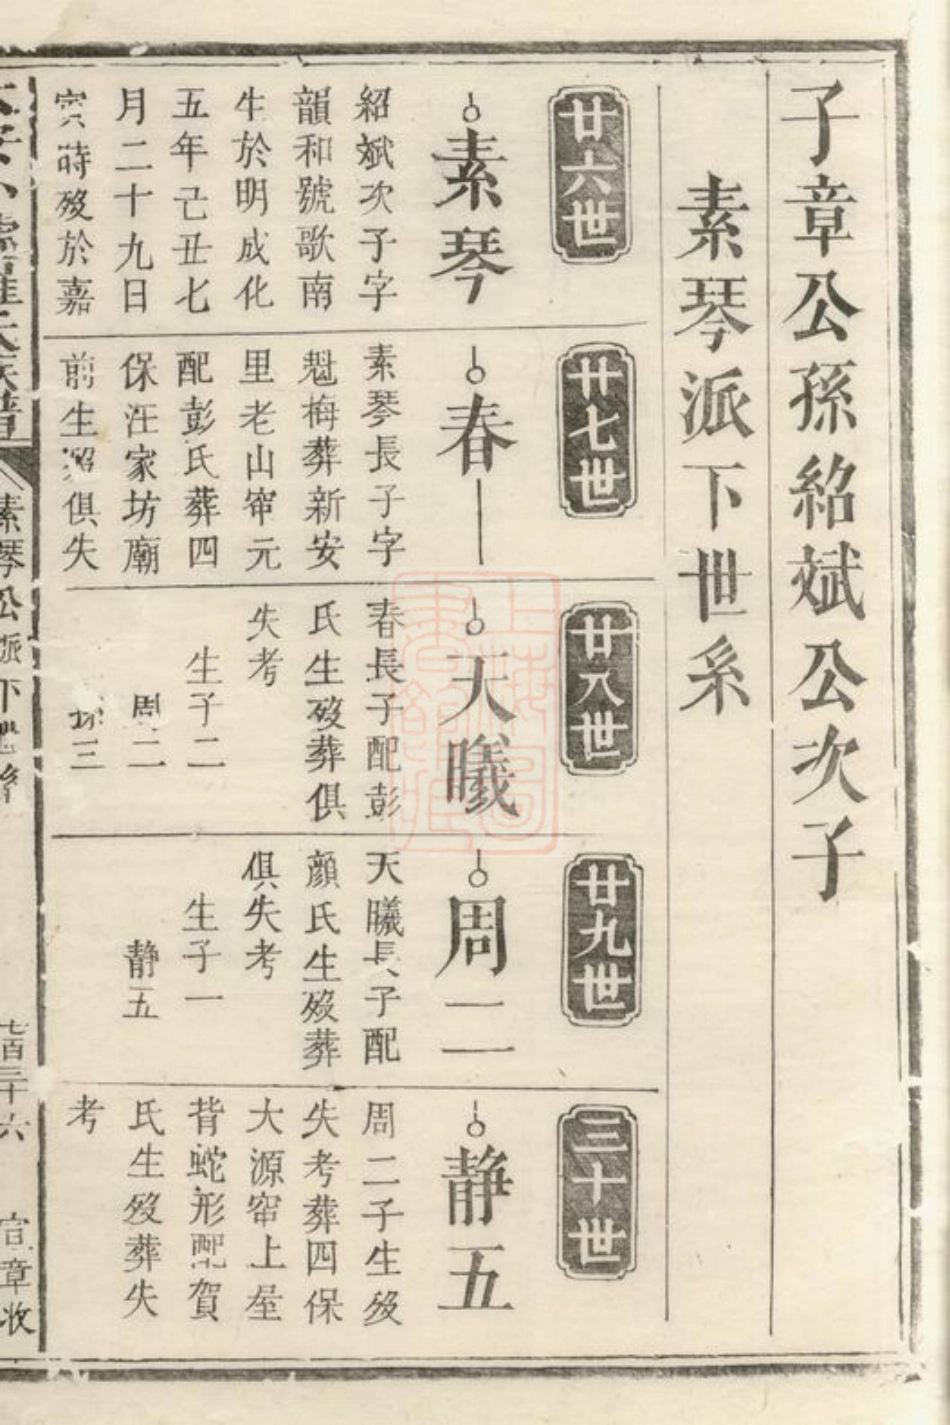 子章公孫紹斌公次子
素琴派下世系
廿六世
素琴
紹斌次子字
韻和號歌南
生於明成化
五年己丑七
月二十九日
寅時歿於嘉
廿七世
春一
素琴長子字
魁梅葬新安
里老山窜元
配彭氏葬四
保汪家坊廟
前生歿俱失
廿八世
天曦
春長子配彭
氏生歿葬俱
失考
生子二
周二
三
廿九世
周二
天曦長子配
顔氏生歿葬
俱失考
生子一
静五
三十世
静五
周二子生歿
失考葬四保
大源窜上屋
背蛇形配賀
氏生歿葬失
考
氏族譜
素琴公派下世系
七百三十六
宣章收